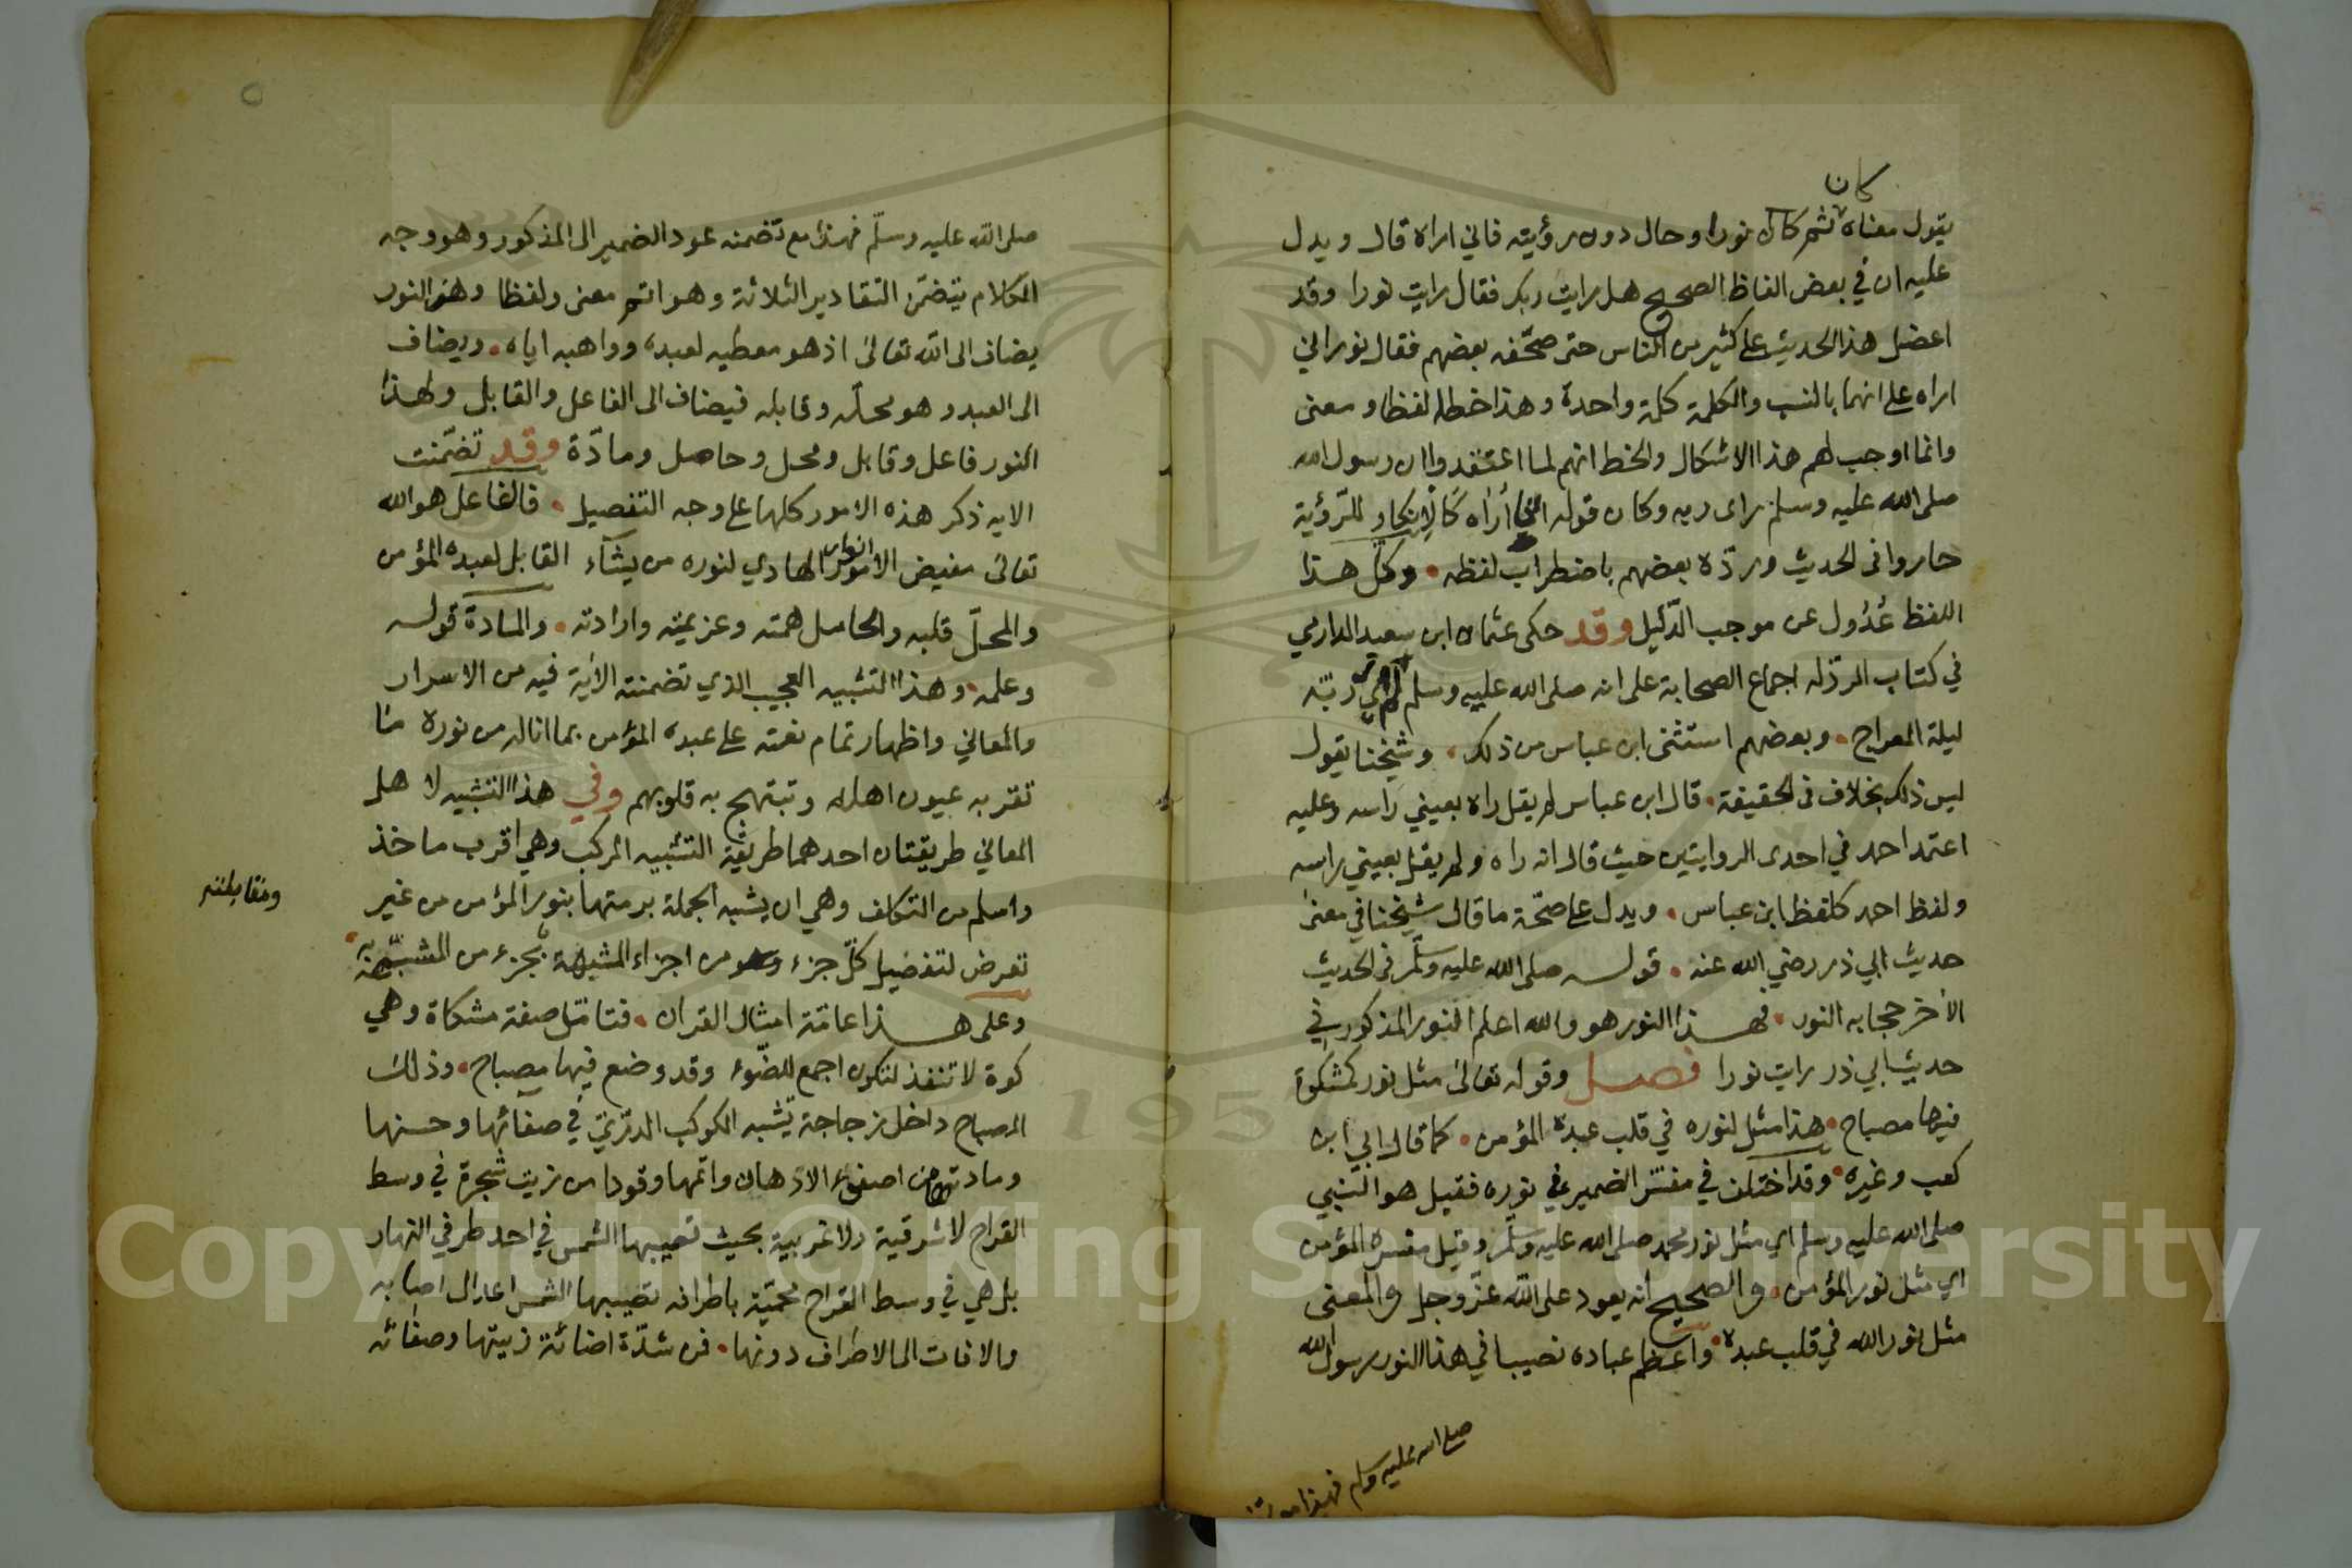 كان
يقول معناه ثم كان نورا وحال دون رؤيته فاني اراه قال ويدل
عليه ان في بعض الفاظ الصحيح هل رايت ربك فقال رايت نورا وقد
اعضل هذا الحديث على كثير من الناس حتى صحّفه بعضهم فقال نوراني
اراه على انهما بالنسب والكلمة كلمة واحدة وهذا خطا لفظا ومعنى
وانما اوجب لهم هذا الاشكال والخطا انهم لما اعتقدوا ان رسول الله
صلى الله عليه وسلم راى ربه وكان قوله انى أراه كالإنكار للرّؤية
حاروا في الحديث وردّه بعضهم باضطراب لفظه • وكل هذا
اللفظ عُدُول عن موجب الدّليل وقد حكى عثمان ابن سعيد الدارمي
في كتاب الردّ له اجماع الصحابة على انه صلى الله عليه وسلم لم ير ربّه
ليلة المعراج • وبعضهم استثنى ابن عباس من ذلك • وشيخنا يقول
ليس ذلك بخلاف في الحقيقة • قال ابن عباس لم يقل راه بعيني راسه وعليه
اعتمد احمد في احدى الروايتين حيث قال انه راه ولم يقل بعيني راسه
ولفظ احمد كلفظ ابن عباس • ويدل على صحّة ما قال شيخنا في معنى
حديث ابي ذر رضي الله عنه • قوله صلى الله عليه وسلّم في الحديث
الأخر حجابه النور • فهذا النور هو والله اعلم النور المذكور في
حديث ابي ذر رايت نورا فصل وقوله تعالى مثل نوره كمشكوة
فيها مصباح • هذا مثل لنوره في قلب عبده المؤمن • كما قال ابي ابن
كعب وغيره • وقد اختلف في مفسّر الضمير في نوره فقيل هو النبي
صلى الله عليه وسلم اي مثل نور محمد صلى الله عليه وسلّم وقيل مفسره المؤمن
اي مثل نور المؤمن • والصحيح انه يعود على الله عزّ وجل والمعنى
مثل نور الله في قلب عبده • واعظم عباده نصيبا في هذا النور رسول الله
صلى الله عليه وسلم فهذا مع
صلى الله عليه وسلّم فهذا مع تضمنه عود الضمير الى المذكور وهو وجه
الكلام يتضمّن التقادير الثلاثة وهو اتم معنى ولفظا وهذا النور
يضاف الى الله تعالى اذ هو معطيه لعبده وواهبه اياه • ويضاف
الى العبد وهو محلّه وقابله فيضاف الى الفاعل والقابل ولهذا
النور فاعل وقابل ومحل وحامل ومادّة وقد تضمّنت
الايه ذكر هذه الامور كلها على وجه التفصيل • فالفاعل هو الله
تعالى مفيض الانوار الهادي لنوره من يشآء القابل لعبده المؤمن
والمحلّ قلبه والحامل همته وعزيمته وارادته • والمادة قوله
وعلمه • وهذا التشبيه العجيب الذي تضمنته الأية فيه من الاسرار
والمعاني واظهار تمام نعمته على عبده المؤمن بما اناله من نوره ما
تقر به عيون اهله وتبتهج به قلوبهم وفي هذا التشبيه لا هل
المعاني طريقتان احدهما طريقة التشبيه المركب وهي اقرب ماخذ
واسلم من التكلف وهي ان يشبه الجملة برمتها بنور المؤمن من غير
تعرض لتفضيل كلّ جزء من اجزاء المشبه بجزء من المشبه به
ومقابلته
وعلى هذا عامّة امثال القران • فتامّل صفة مشكاة وهي
كوة لا تنفذ لتكون اجمع للضّوء وقد وضع فيها مصباح • وذلك
المصباح داخل زجاجة تشبه الكوكب الدّرّيّ في صفائها وحسنها
ومادته من اصفى الادهان واتمها وقودا من زيت شجرة في وسط
القراح لا شرقية ولا غربية بحيث تصيبها الشمس في احد طرفي النهار
بل هي في وسط القراح محميّة باطرافه تصيبها الشمس اعدل اصابه
والافات الى الاطراف دونها • فمن شدّة اضائة زيتها وصفائه
Copyright © King Saud University
1957